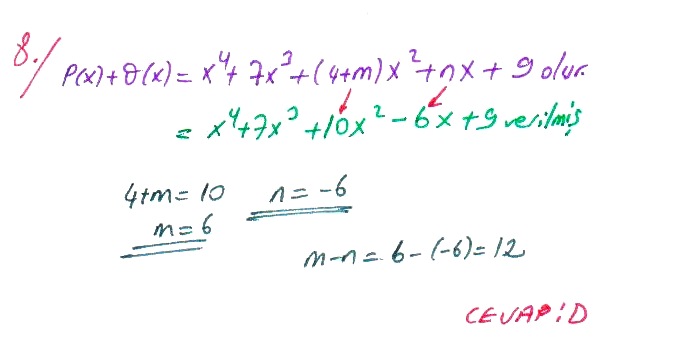 8./ P(x)+Q(x) = x⁴+7x³+(4+m)x²+nx+9 olur.
= x⁴+7x³+10x²-6x+9 verilmiş
4+m=10 n=-6
m=6
m-n=6-(-6)=12
CEVAP:D